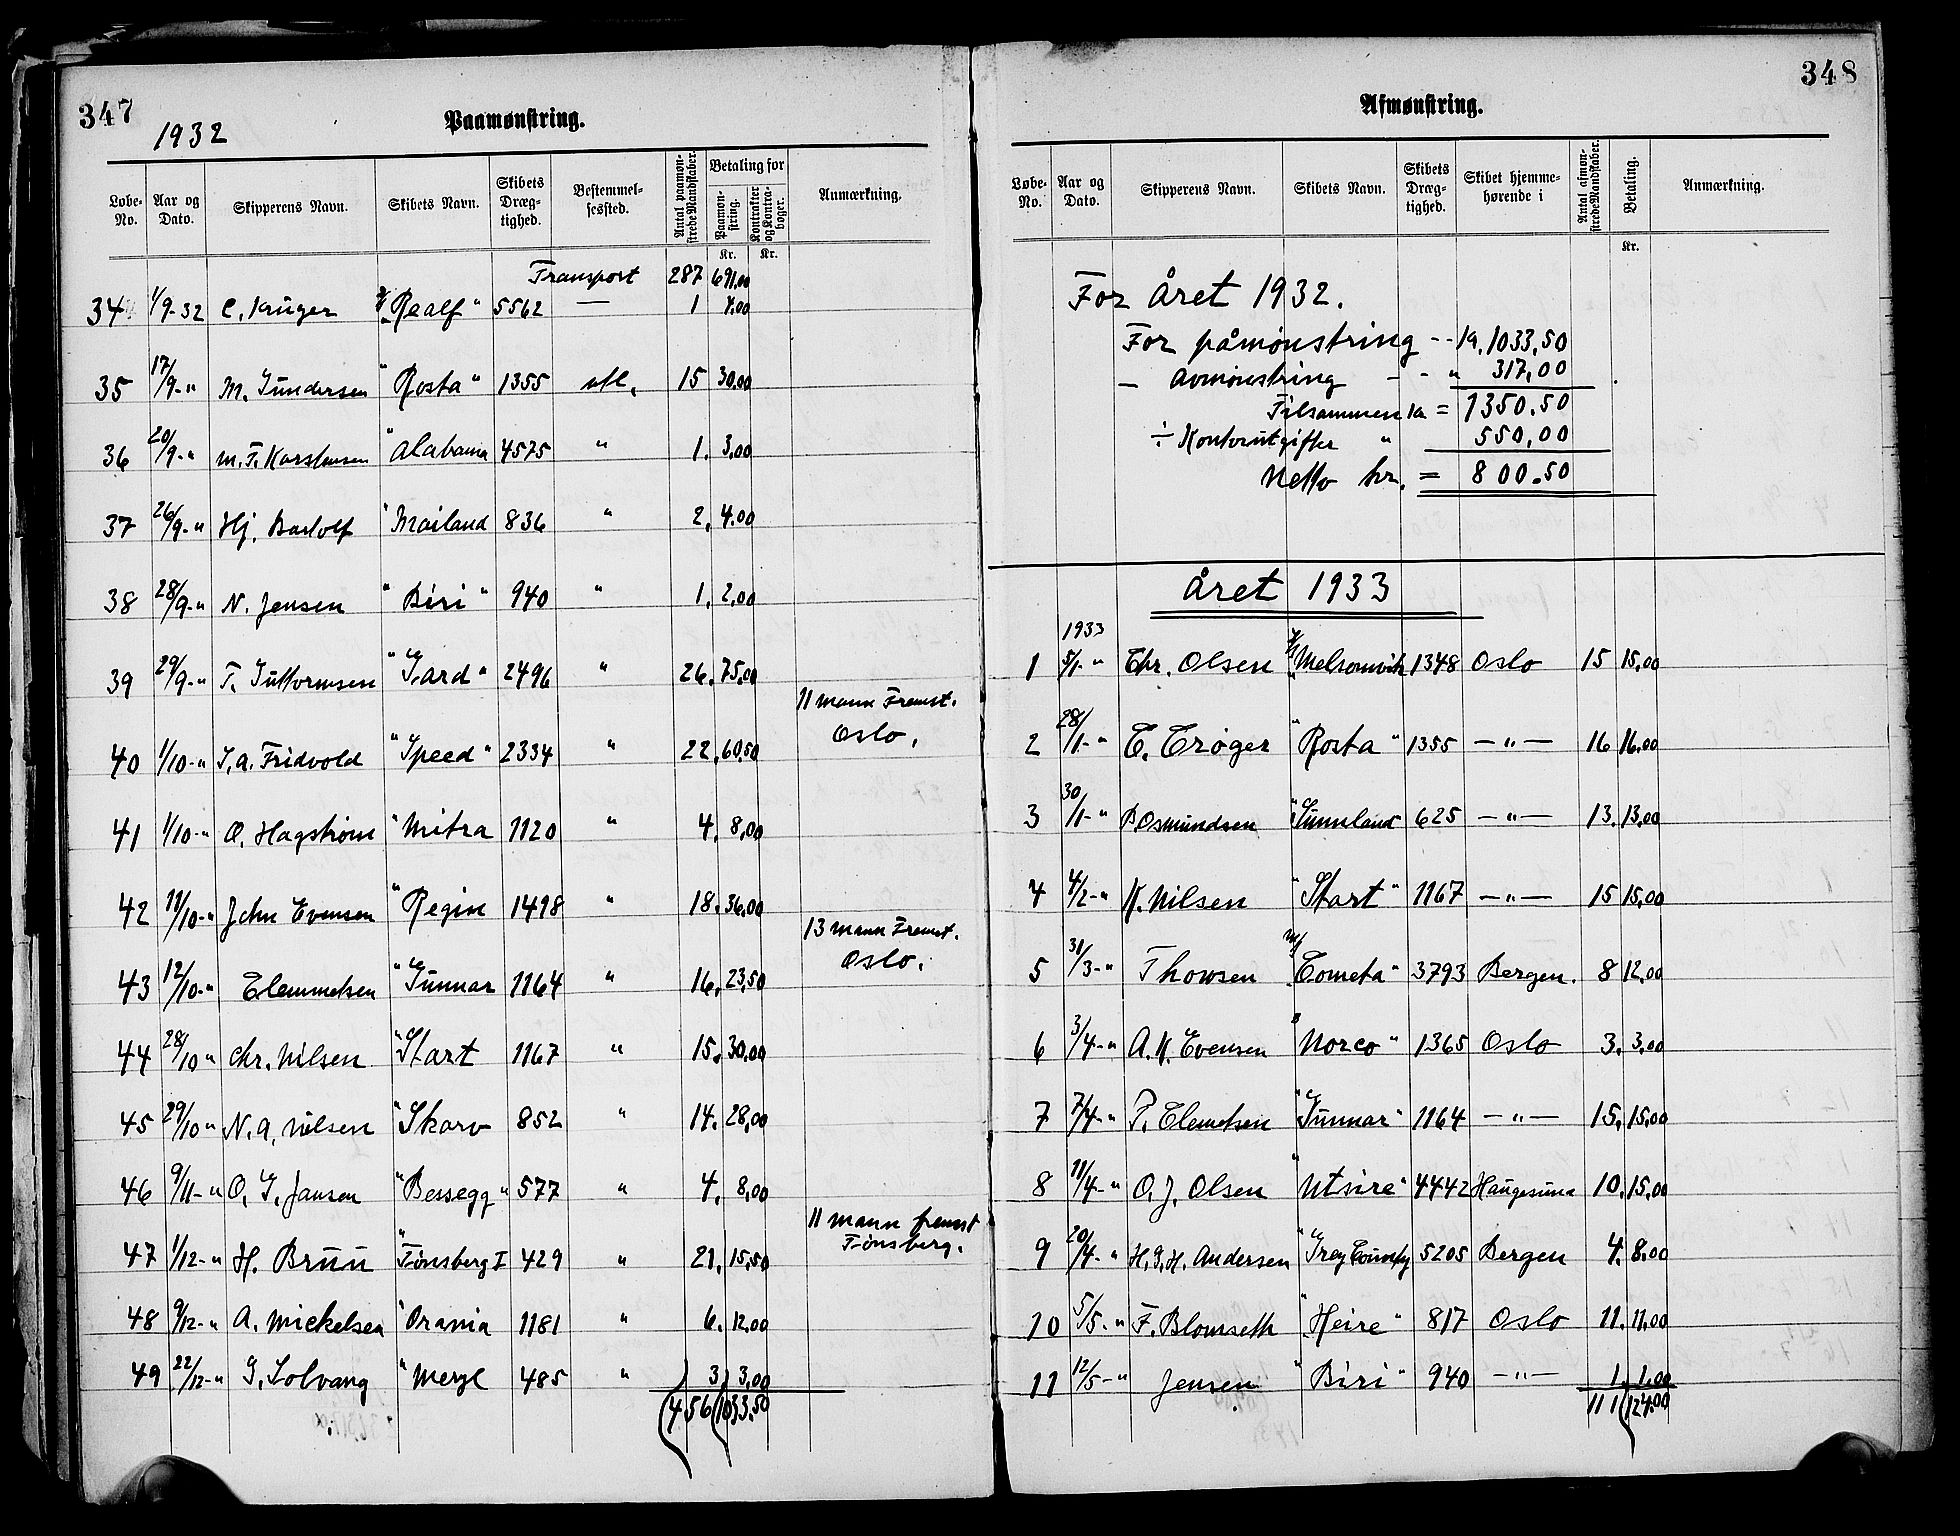 347
1932
Paamønstring.
Løbe-No. Aar og Dato. Skipperens Navn. Skibets Navn. Skibets Dræg-tighed. Bestemmel-sessted. Antal paamøn-strede Mandskaber. Betaling for Paamøn-string. Kontrakter og Kontra-bøger. Anmærkning.
Kr. Kr.
Transport 287 691,00
34 1/9-32 C. Krüger "Realf" 5562 — 1 4.00
35 17/9-" M. Gundersen "Rosta" 1355 utl. 15 30.00
36 20/9-" M. T. Karstensen "Alabama 4575 " 1. 3,00
37 26/9-" Hj. Bartolf "Mailand 836 " 2. 4.00
38 28/9-" N. Jensen "Biri" 940 " 1. 2,00
39 29/9-" T. Guttormsen "Gard" 2496 " 26. 75,00
11 mann Fremst.
40 1/10-" S. A. Fridvold "Speed" 2334 " 22. 60,50 Oslo.
41 1/10-" O. Hagstrøm "Mitra 1120 " 4. 8,00
42 11/10-" John Evensen "Regin 1498 " 18. 36,00
13 mann Fremst.
43 12/10-" Clemmetsen "Gunnar 1164 " 16. 23,50 Oslo.
44 28/10 " Chr. Nilsen "Start 1167 " 15. 30,00
45 29/10 " N. A. Nilsen "Skarv 852 " 14. 28,00
46 9/11-" O. G. Jansen "Bessegg" 577 " 4. 8,00
11 mann fremst
47 1/12-" H. Bruu "Tønsberg I 429 " 21. 15,50 Tønsberg.
48 9/12-" A. Mickelsen "Orania 1181 " 6. 12,00
49 22/12-" G. Solvang "Meryl 485 " 3 3,00
456 1033,50
348
Afmønstring.
Løbe-No. Aar og Dato. Skipperens Navn. Skibets Navn. Skibets Dræg-tighed. Skibet hjemme-hørende i Antal afmøn-strede Mandskaber. Betaling. Anmærkning.
Kr.
For året 1932.
For påmønstring -- kr. 1033,50
— avmønstring - - " 317,00
Tilsammen kr = 1350.50
÷ Kontorutgifter " 550,00
Netto kr. = 800.50
Året 1933
1933
1 5/1-" Chr. Olsen "Melsomvik 1348 Oslo 15 15,00
2 28/1-" C. Crøger "Rosta" 1355 —"— 16 16,00
3 30/1-" B Osmundsen "Sunnland 625 —"— 13. 13,00
4 4/2-" K. Nilsen "Start" 1167 —"— 15 15,00
5 31/3-" Thowsen M/ "Cometa" 3793 Bergen. 8 12,00
6 3/4-" A. K. Evensen "Noreo" 1365 Oslo 3. 3,00
7 7/4-" P. Clemetsen "Gunnar" 1164 —"— 15. 15,00
8 11/4-" O. J. Olsen "Utsire" 4442 Haugesund 10. 15,00
9 20/4-" H. G. H. Andersen "Grey County 5205 Bergen 4. 8.00
10 5/5-" F. Blomseth "Heire" 817 Oslo 11. 11,00
11 12/5-" Jensen "Biri" 940 —"— 1. 1,00
111 124.00